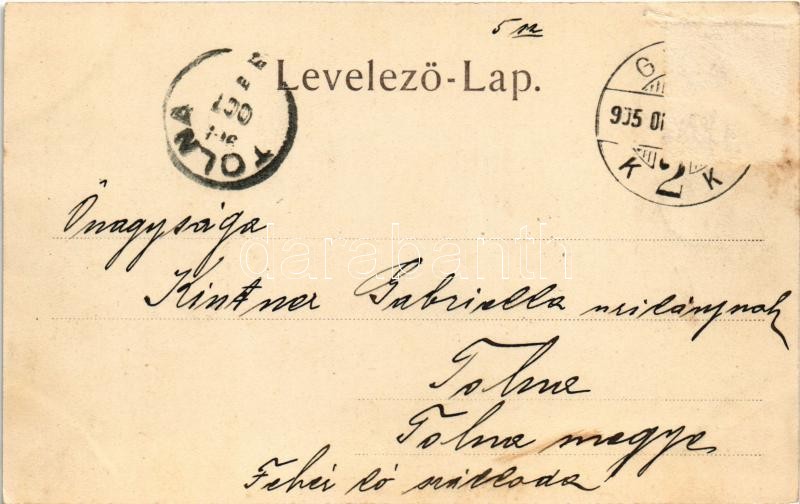 5 sz
Levelező-Lap.
TOLNA
905 OKT
K 2 K
Őnagysága
darabanth
Kintner Gabriella urilánynak
Tolna
Tolna megye
Fehér ló szálloda